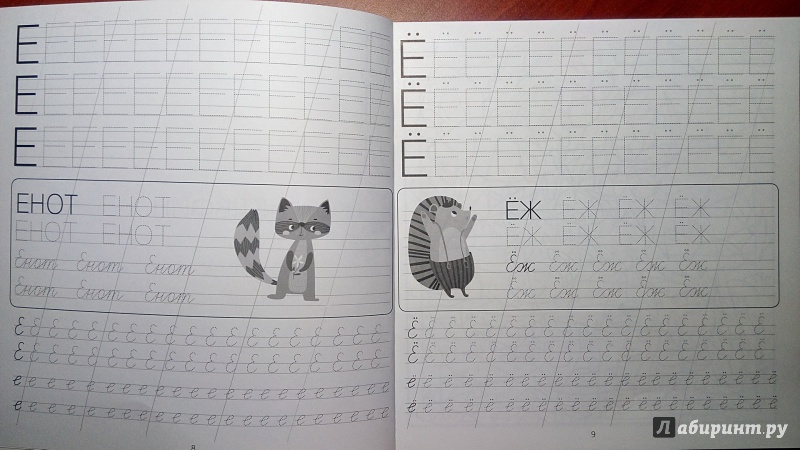 Е Е Е Е Е Е Е Е Е Е Е Е
Е Е Е Е Е Е Е Е Е Е Е Е
Е Е Е Е Е Е Е Е Е Е Е Е
ЕНОТ ЕНОТ
ЕНОТ ЕНОТ
Енот Енот Енот
Енот Енот Енот
Е Е Е Е Е Е Е Е Е Е Е Е Е Е Е Е Е Е Е
Е Е Е Е Е Е Е Е Е Е Е Е Е Е Е Е Е Е Е
е е е е е е е е е е е е е е е е е е е е е е
е е е е е е е е е е е е е е е е е е е е е е
8
Ё Ё Ё Ё Ё Ё Ё Ё Ё Ё Ё Ё
Ё Ё Ё Ё Ё Ё Ё Ё Ё Ё Ё Ё
Ё Ё Ё Ё Ё Ё Ё Ё Ё Ё Ё Ё
ЁЖ ЁЖ ЁЖ ЁЖ
ЁЖ ЁЖ ЁЖ ЁЖ
Ёж Ёж Ёж Ёж Ёж
Ёж Ёж Ёж Ёж Ёж
Ё Ё Ё Ё Ё Ё Ё Ё Ё Ё Ё Ё Ё Ё Ё Ё Ё Ё
Ё Ё Ё Ё Ё Ё Ё Ё Ё Ё Ё Ё Ё Ё Ё Ё Ё Ё
ё ё ё ё ё ё ё ё ё ё ё ё ё ё ё ё ё ё ё ё ё
ё ё ё ё ё ё ё ё ё ё ё ё ё ё ё ё ё ё ё ё ё
9
Лабиринт.ру